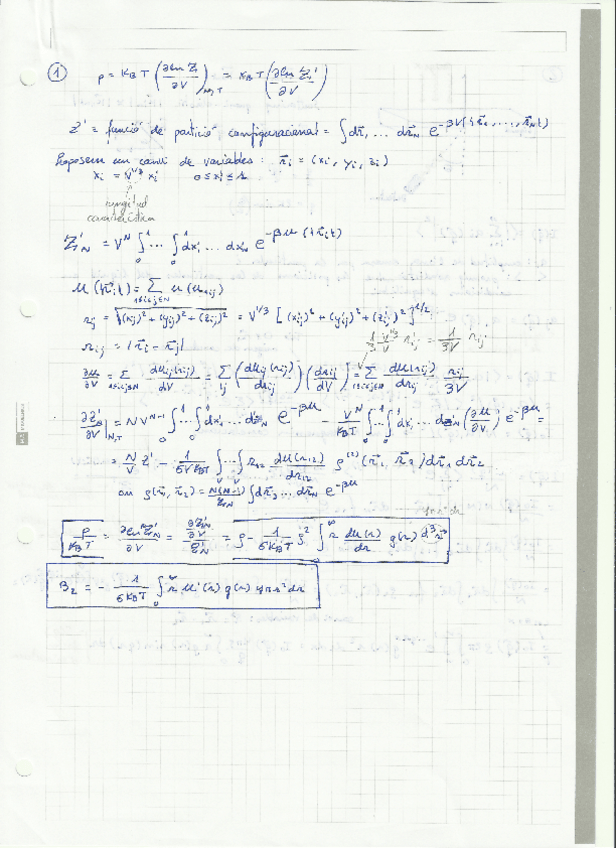 1
p = K_B T (∂ln Z/∂V)_{N,T} = K_B T (∂ln Z'/∂V)
Z' = funció de partició configuracional = ∫ dr⃗₁ ... dr⃗_N e^{-βU({r⃗₁, ..., r⃗_N})}
Proposem un canvi de variables : r⃗_i = (x_i, y_i, z_i)
x_i = V^{1/3} x_i' 0 ≤ x_i' ≤ 1
longitud
característica
Z'_N = V^N ∫₀¹ ... ∫₀¹ dx₁' ... dx_N' e^{-βU({r⃗_i})}
U({r⃗_i}) = Σ_{1≤i<j≤N} u(r_ij)
r_ij = √((x_ij)² + (y_ij)² + (z_ij)²) = V^{1/3} [(x'_ij)² + (y'_ij)² + (z'_ij)²]^{1/2}
r_ij = |r⃗_i - r⃗_j| 1/3 V^{1/3}/V r'_ij = 1/3V r_ij
∂U/∂V = Σ_{1≤i<j≤N} du(r_ij)/dV = Σ_{ij} (du(r_ij)/dr_ij) (dr_ij/dV) = Σ_{1≤i<j≤N} du(r_ij)/dr_ij r_ij/3V
∂Z'_N/∂V|_{N,T} = N V^{N-1} ∫₀¹ ... ∫₀¹ dx₁' ... dz_N' e^{-βU} - V^N/K_BT ∫₀¹ ... ∫₀¹ dx₁' ... dz_N' (∂U/∂V) e^{-βU} =
= N/V Z' - 1/6VK_BT ∫_V ... ∫_V r₁₂ du(r₁₂)/dr₁₂ ρ^{(2)}(r⃗₁, r⃗₂) dr⃗₁ dr⃗₂
on ρ(r⃗₁, r⃗₂) = N(N-1)/Z'_N ∫ dr⃗₃ ... dr⃗_N e^{-βU}
4πr²dr
p/K_BT = ∂ln Z'_N/∂V = (∂Z'_N/∂V)/Z'_N = ρ - 1/6K_BT ρ² ∫₀^∞ r du(r)/dr g(r) d³r⃗
B₂ = - 1/6K_BT ∫₀^∞ r u'(r) g(r) 4πr² dr